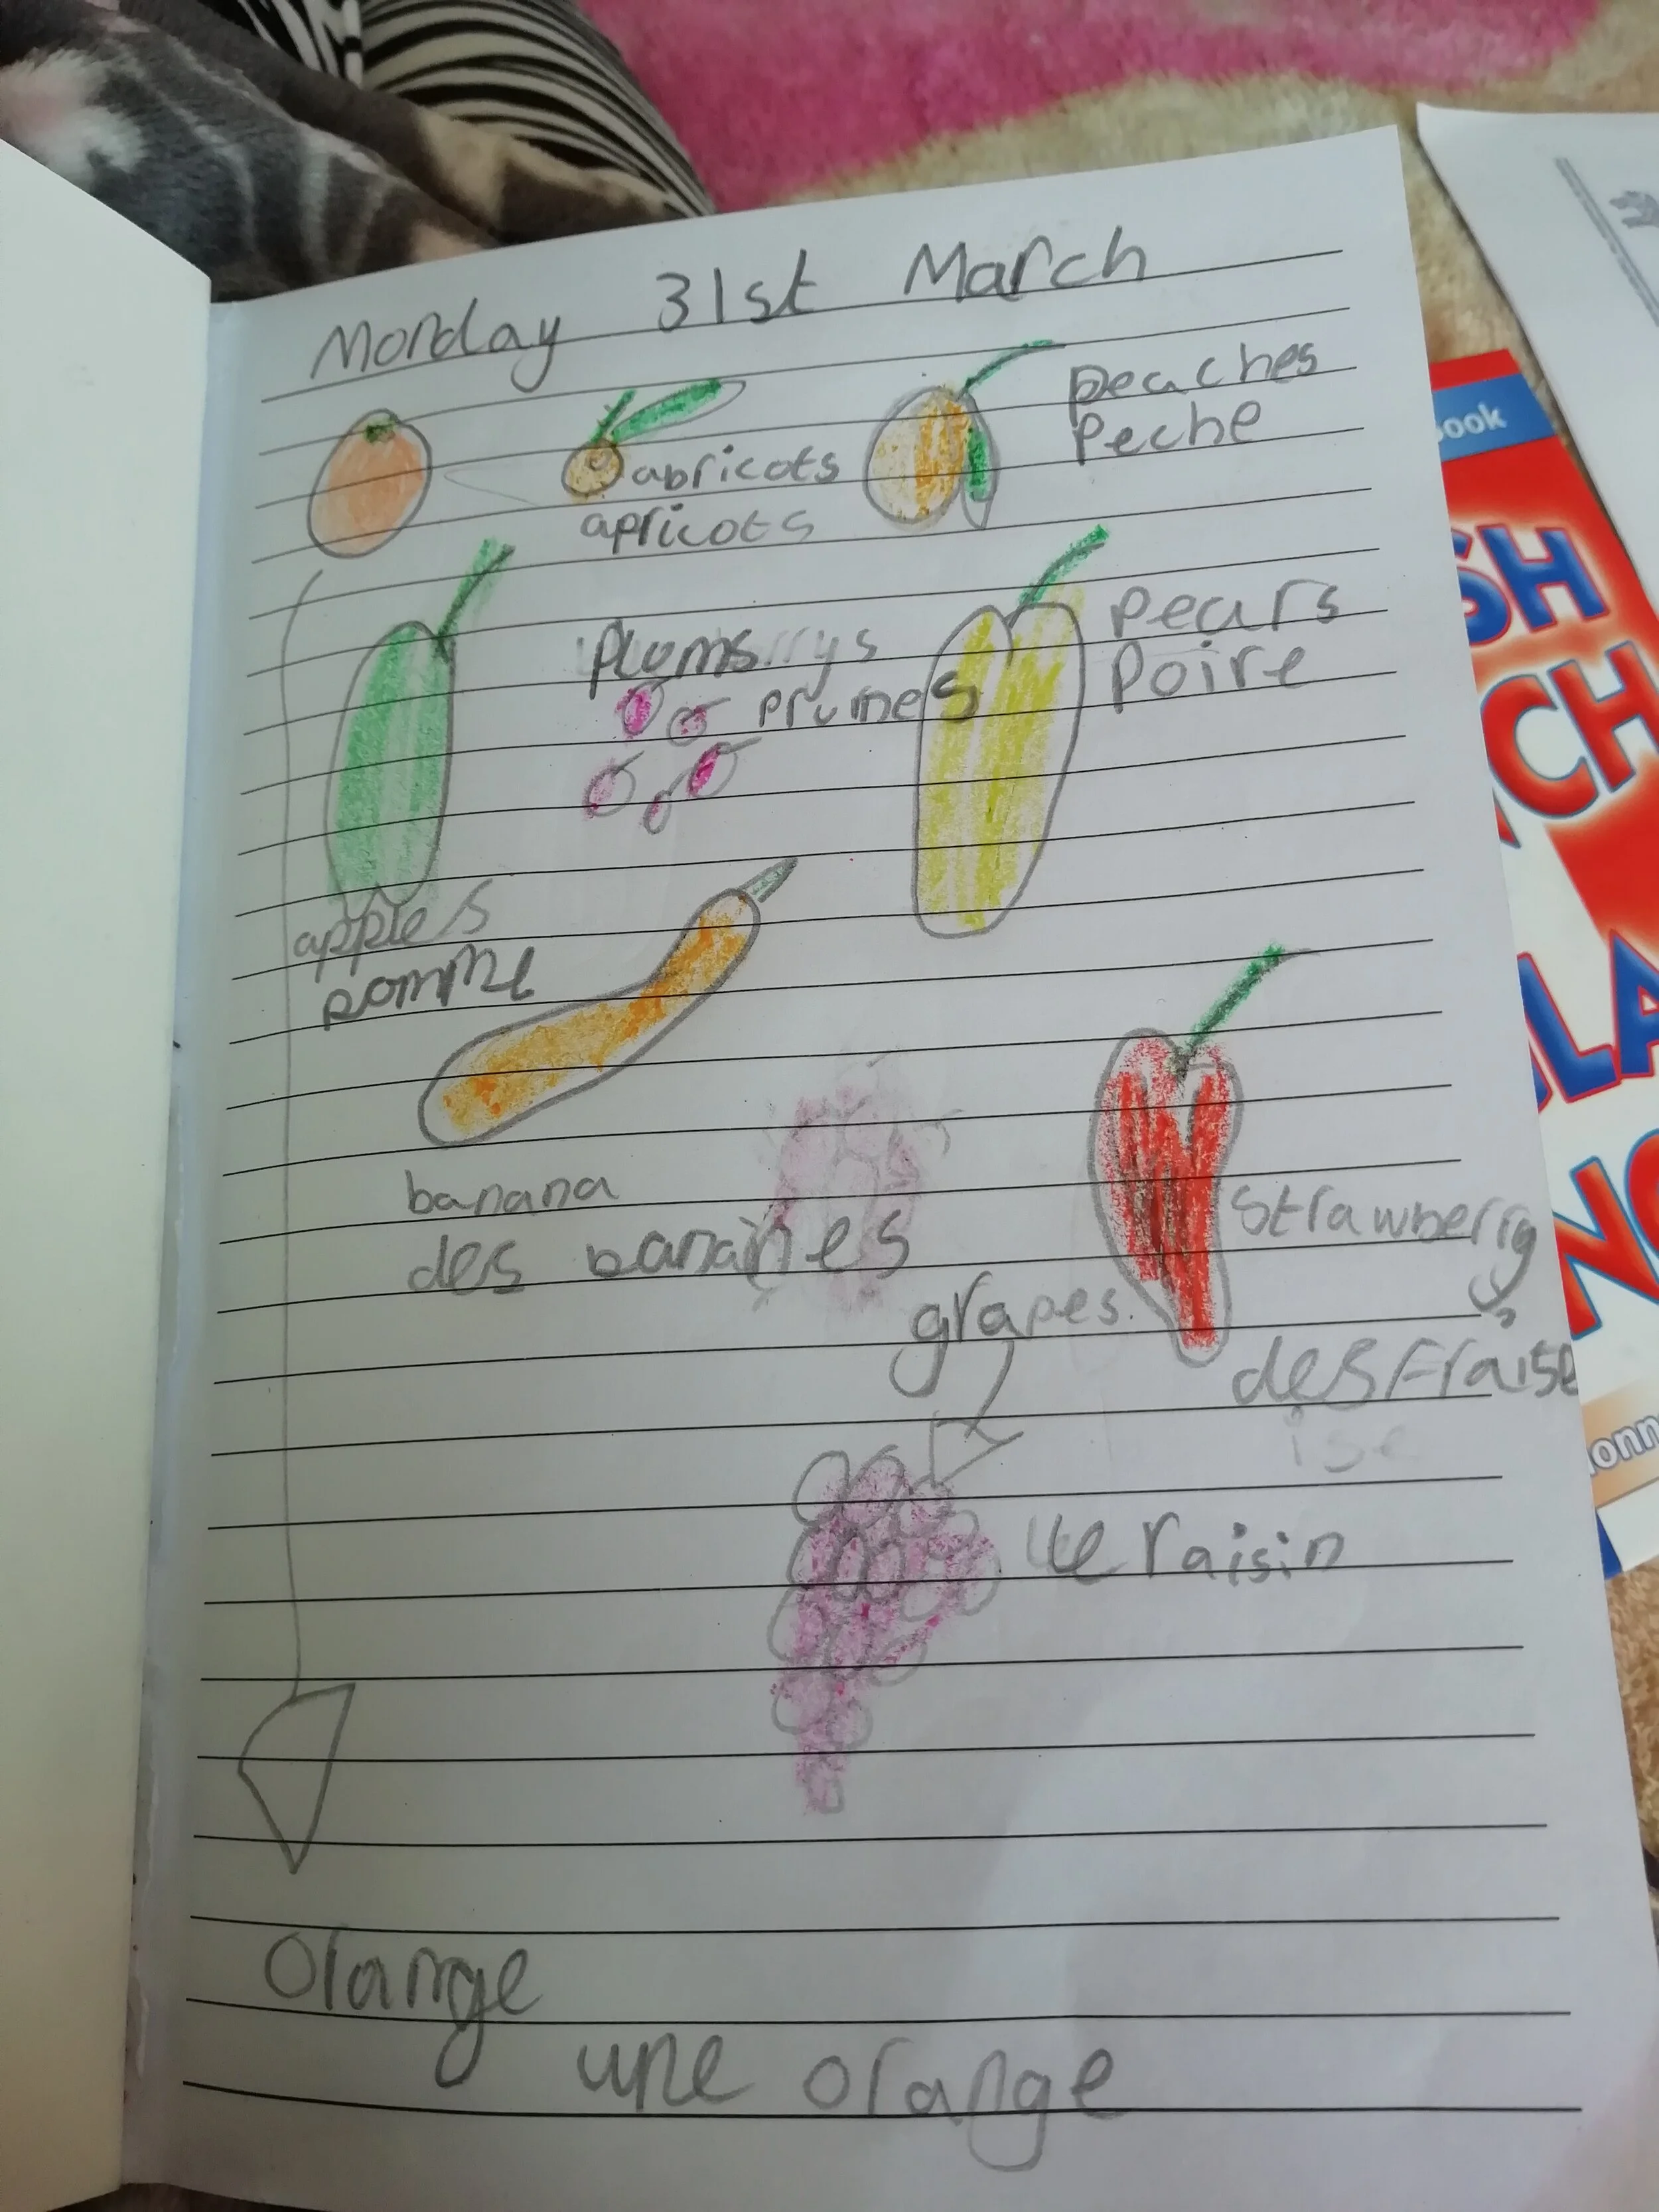 Monday 31st March
apricots
apricots
peaches
Peche
Plums
prunes
pears
Poire
apples
pomme
banana
des bananes
Strawberry
des Fraise
grapes
le raisin
Orange
une orange
ook
SH
CH
LA